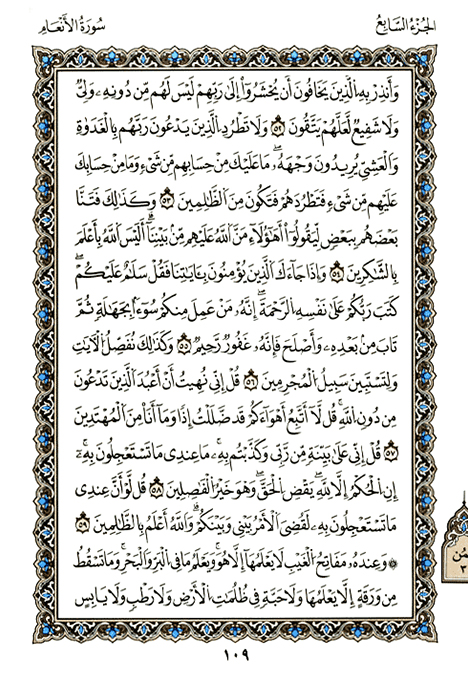 الجزء السابع
سورة الأنعام
وَأَنذِرْ بِهِ الَّذِينَ يَخَافُونَ أَن يُحْشَرُوا إِلَىٰ رَبِّهِمْ لَيْسَ لَهُم مِّن دُونِهِ وَلِيٌّ
وَلَا شَفِيعٌ لَّعَلَّهُمْ يَتَّقُونَ ٥٢ وَلَا تَطْرُدِ الَّذِينَ يَدْعُونَ رَبَّهُم بِالْغَدَوٰةِ
وَالْعَشِيِّ يُرِيدُونَ وَجْهَهُ مَا عَلَيْكَ مِنْ حِسَابِهِم مِّن شَيْءٍ وَمَا مِنْ حِسَابِكَ
عَلَيْهِم مِّن شَيْءٍ فَتَطْرُدَهُمْ فَتَكُونَ مِنَ الظَّٰلِمِينَ ٥٣ وَكَذَٰلِكَ فَتَنَّا
بَعْضَهُم بِبَعْضٍ لِّيَقُولُوا أَهَٰؤُلَاءِ مَنَّ اللَّهُ عَلَيْهِم مِّنۢ بَيْنِنَا أَلَيْسَ اللَّهُ بِأَعْلَمَ
بِالشَّٰكِرِينَ ٥٤ وَإِذَا جَاءَكَ الَّذِينَ يُؤْمِنُونَ بِـَٔايَٰتِنَا فَقُلْ سَلَٰمٌ عَلَيْكُمْ
كَتَبَ رَبُّكُمْ عَلَىٰ نَفْسِهِ الرَّحْمَةَ إِنَّهُ مَنْ عَمِلَ مِنكُمْ سُوءًۢا بِجَهَٰلَةٍ ثُمَّ
تَابَ مِنۢ بَعْدِهِ وَأَصْلَحَ فَإِنَّهُ غَفُورٌ رَّحِيمٌ ٥٥ وَكَذَٰلِكَ نُفَصِّلُ الْآيَٰتِ
وَلِتَسْتَبِينَ سَبِيلُ الْمُجْرِمِينَ ٥٦ قُلْ إِنِّي نُهِيتُ أَنْ أَعْبُدَ الَّذِينَ تَدْعُونَ
مِن دُونِ اللَّهِ قُل لَّا أَتَّبِعُ أَهْوَاءَكُمْ قَد ضَّلَلْتُ إِذًا وَمَا أَنَا مِنَ الْمُهْتَدِينَ
٥٧ قُلْ إِنِّي عَلَىٰ بَيِّنَةٍ مِّن رَّبِّي وَكَذَّبْتُم بِهِ مَا عِندِي مَا تَسْتَعْجِلُونَ بِهِ
إِنِ الْحُكْمُ إِلَّا لِلَّهِ يَقْضِ الْحَقَّ وَهُوَ خَيْرُ الْفَٰصِلِينَ ٥٨ قُل لَّوْ أَنَّ عِندِي
مَا تَسْتَعْجِلُونَ بِهِ لَقُضِيَ الْأَمْرُ بَيْنِي وَبَيْنَكُمْ وَاللَّهُ أَعْلَمُ بِالظَّٰلِمِينَ ٥٩
۞ وَعِندَهُ مَفَاتِحُ الْغَيْبِ لَا يَعْلَمُهَا إِلَّا هُوَ وَيَعْلَمُ مَا فِي الْبَرِّ وَالْبَحْرِ وَمَا تَسْقُطُ
مِن وَرَقَةٍ إِلَّا يَعْلَمُهَا وَلَا حَبَّةٍ فِي ظُلُمَٰتِ الْأَرْضِ وَلَا رَطْبٍ وَلَا يَابِسٍ
١٠٩